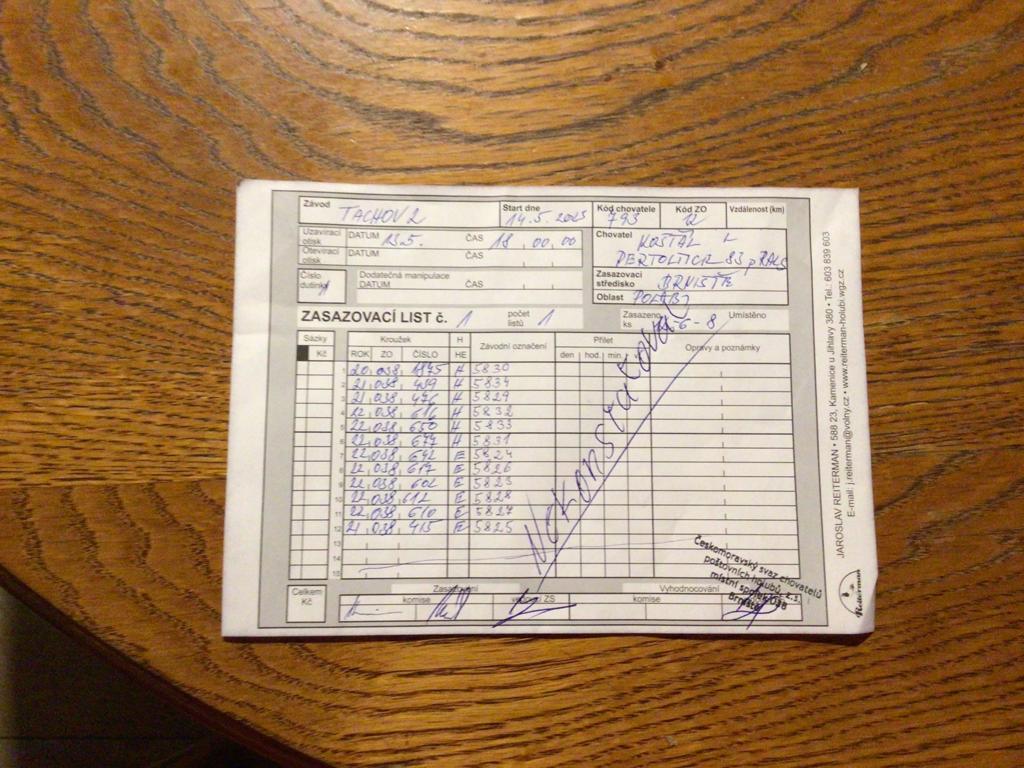 Závod TACHOV 2 Start dne 14.5. 2023 Kód chovatele 793 Kód ZO 12 Vzdálenost (km)
Uzavírací otisk DATUM 13.5. ČAS 18 00 00
Otevírací otisk DATUM ČAS
Chovatel KOŠŤÁL L
PERTOLTICE 83 p RALS
Číslo dutinky Dodatečná manipulace
DATUM ČAS
Zasazovací středisko BRNIŠTĚ
Oblast POLABÍ
ZASAZOVACÍ LIST č. 1 počet listů 1 Zasazeno ks 6-8 Umístěno
Sázky Kroužek H Závodní označení Přílet Opravy a poznámky
Kč ROK ZO ČÍSLO HE den hod. min.
1 20 038 1875 H 5830
2 21 038 489 H 5834
3 21 038 476 H 5829
4 22 038 616 H 5832
5 22 038 650 H 5833
6 22 038 677 H 5831
7 22 038 642 E 5824
8 22 038 617 E 5826
9 22 038 602 E 5823
10 22 038 612 E 5828
11 22 038 610 E 5827
12 21 038 415 E 5825
13
14
15
Nekonstatováno
Celkem Kč Zasazování Vyhodnocování
komise ZS komise
Českomoravský svaz chovatelů
poštovních holubů, z.s.
místní spolek 038
Brniště
JAROSLAV REITERMAN • 588 23, Kamenice u Jihlavy 380 • Tel.: 603 839 603
E-mail: j.reiterman@volny.cz • www.reiterman-holubi.wgz.cz
Reiterman